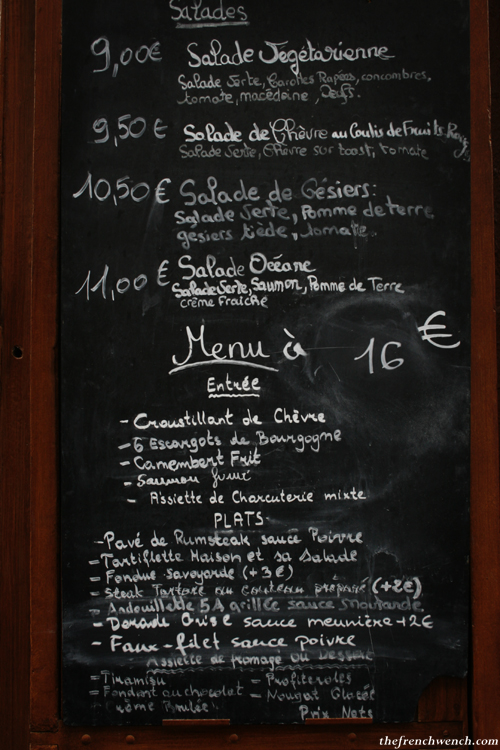 Salades
9,00€ Salade Végétarienne
Salade Verte, Carottes Rapées, concombres,
tomate, macédoine, Oeufs.
9,50€ Salade de Chèvre au Coulis de Fruits Rouges
Salade Verte, Chèvre sur toast, tomate
10,50€ Salade de Gésiers:
Salade Verte, Pomme de terre
gésiers tiède, tomate..
11,00€ Salade Océane
Salade Verte, Saumon, Pomme de Terre
crème fraiche
Menu à 16€
Entrée
- Croustillant de Chèvre
- 6 Escargots de Bourgogne
- Camembert Frit
- Saumon fumé
- Assiette de Charcuterie mixte
PLATS
- Pavé de Rumsteak sauce Poivre
- Tartiflette Maison et sa Salade
- Fondue Savoyarde (+3€)
- Steak Tartare au couteau préparé (+2€)
- Andouillette 5A grillée sauce moutarde
- Dorade Grise sauce meunière +2€
- Faux-filet sauce poivre
Assiette de fromage ou Dessert
- Tiramisu - Profiteroles
- Fondant au chocolat - Nougat Glacé
- crème Brulée
Prix Nets
thefrenchwench.com